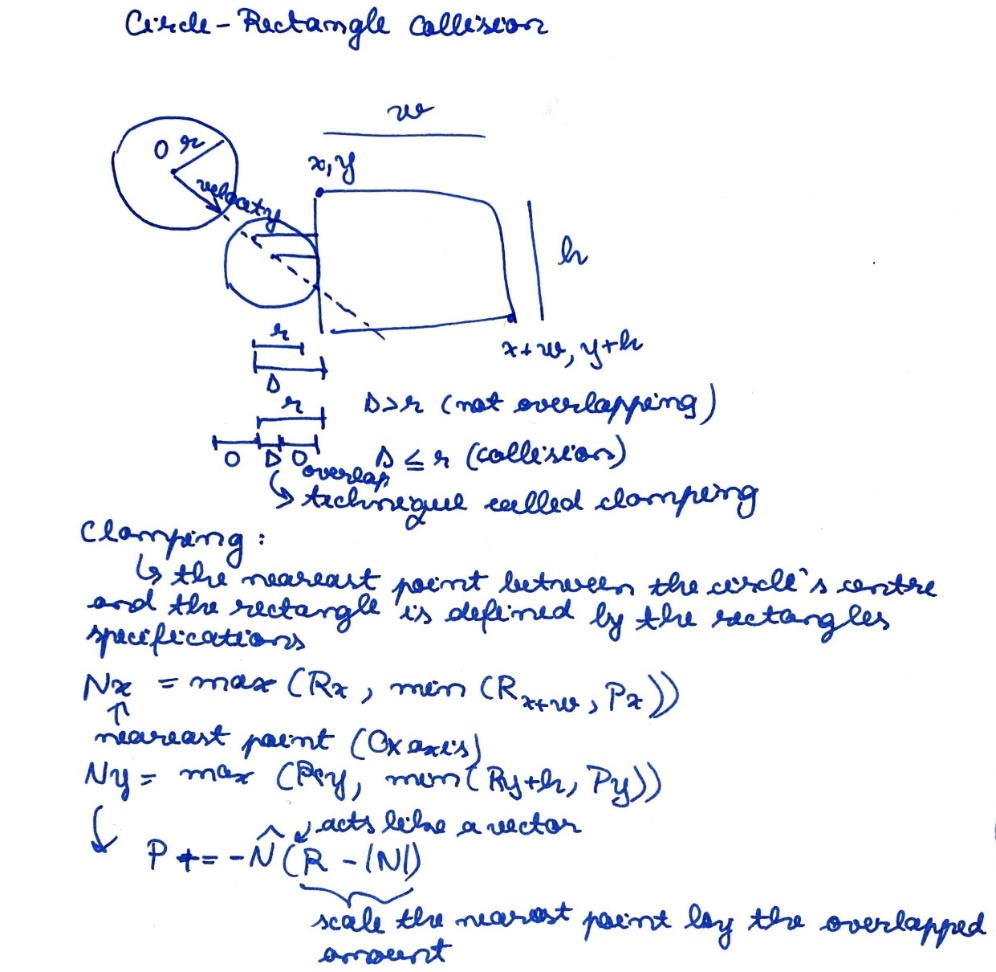 Circle-Rectangle Collision
w
O r
x, y
velocity
h
x+w, y+h
r
D
r
D>r (not overlapping)
O D O
D ≤ r (collision)
overlap
↳ technique called clamping
Clamping:
↳ the neareast point between the circle's centre
and the rectangle is defined by the rectangles
specifications
Nx = max (Rx, min (Rx+w, Px))
↑
neareast point (Ox axis)
Ny = max (Ry, min (Ry+h, Py))
acts like a vector
P += -N̂ (R - |N|)
scale the nearest point by the overlapped
amount